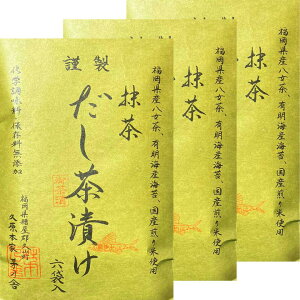 福岡県産八女茶、有明海産海苔、国産煎り米使用
抹茶
謹製
だし茶漬け
六袋入
化学調味料 保存料無添加
福岡県糟屋郡久山町
久原本家 茅乃舎
福岡県産八女茶、有明海産海苔、国産煎り米使用
抹茶
福岡県産八女茶、有明海産海苔、国産煎り米使用
抹茶